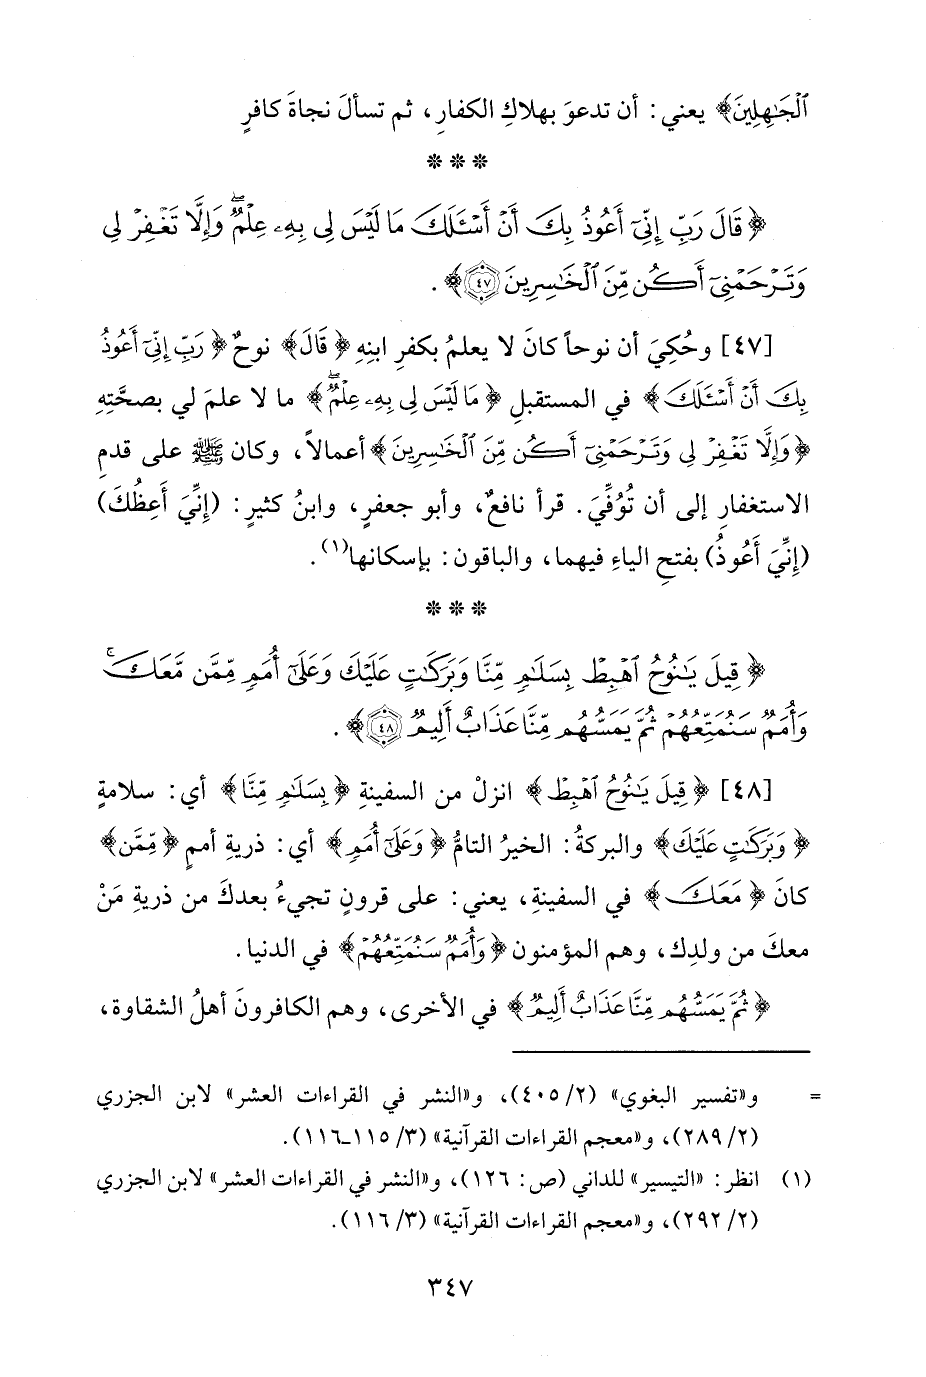 ٱلْجَٰهِلِينَ﴾ يعني: أن تدعوَ بهلاكِ الكفارِ، ثم تسألَ نجاةَ كافرٍ
* * *
﴿قَالَ رَبِّ إِنِّىٓ أَعُوذُ بِكَ أَنْ أَسْـَٔلَكَ مَا لَيْسَ لِى بِهِۦ عِلْمٌۖ وَإِلَّا تَغْفِرْ لِى
وَتَرْحَمْنِىٓ أَكُن مِّنَ ٱلْخَٰسِرِينَ ٤٧﴾.
[٤٧] وحُكِيَ أن نوحاً كانَ لا يعلمُ بكفرِ ابنِهِ ﴿قَالَ﴾ نوحٌ ﴿رَبِّ إِنِّىٓ أَعُوذُ
بِكَ أَنْ أَسْـَٔلَكَ﴾ في المستقبلِ ﴿مَا لَيْسَ لِى بِهِۦ عِلْمٌۖ﴾ ما لا علمَ لي بصحَّتِهِ
﴿وَإِلَّا تَغْفِرْ لِى وَتَرْحَمْنِىٓ أَكُن مِّنَ ٱلْخَٰسِرِينَ﴾ أعمالاً، وكان ﷺ على قدمِ
الاستغفارِ إلى أن تُوُفِّيَ. قرأ نافعٌ، وأبو جعفرٍ، وابنُ كثيرٍ: (إِنِّيَ أَعِظُكَ)
(إِنِّيَ أَعُوذُ) بفتحِ الياءِ فيهما، والباقون: بإسكانها(١).
* * *
﴿قِيلَ يَٰنُوحُ ٱهْبِطْ بِسَلَٰمٍ مِّنَّا وَبَرَكَٰتٍ عَلَيْكَ وَعَلَىٰٓ أُمَمٍ مِّمَّن مَّعَكَۚ
وَأُمَمٌ سَنُمَتِّعُهُمْ ثُمَّ يَمَسُّهُم مِّنَّا عَذَابٌ أَلِيمٌ ٤٨﴾.
[٤٨] ﴿قِيلَ يَٰنُوحُ ٱهْبِطْ﴾ انزلْ من السفينةِ ﴿بِسَلَٰمٍ مِّنَّا﴾ أي: سلامةٍ
﴿وَبَرَكَٰتٍ عَلَيْكَ﴾ والبركةُ: الخيرُ التامُّ ﴿وَعَلَىٰٓ أُمَمٍ﴾ أي: ذريةِ أممٍ ﴿مِّمَّن﴾
كانَ ﴿مَعَكَ﴾ في السفينةِ، يعني: على قرونٍ تجيءُ بعدكَ من ذريةِ مَنْ
معكَ من ولدِك، وهم المؤمنون ﴿وَأُمَمٌ سَنُمَتِّعُهُمْ﴾ في الدنيا.
﴿ثُمَّ يَمَسُّهُم مِّنَّا عَذَابٌ أَلِيمٌ﴾ في الأخرى، وهم الكافرونَ أهلُ الشقاوة،
= و«تفسير البغوي» (٢/ ٤٠٥)، و«النشر في القراءات العشر» لابن الجزري
(٢/ ٢٨٩)، و«معجم القراءات القرآنية» (٣/ ١١٥-١١٦).
(١) انظر: «التيسير» للداني (ص: ١٢٦)، و«النشر في القراءات العشر» لابن الجزري
(٢/ ٢٩٢)، و«معجم القراءات القرآنية» (٣/ ١١٦).
٣٤٧